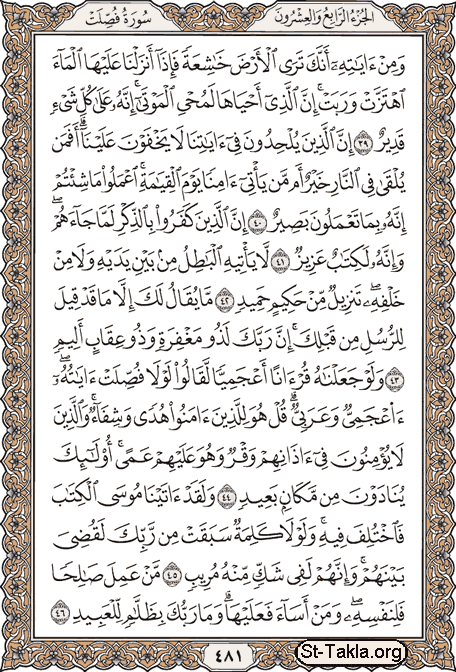 الجزء الرابع والعشرون سورة فصلت
وَمِنْ ءَايَٰتِهِۦٓ أَنَّكَ تَرَى ٱلْأَرْضَ خَٰشِعَةً فَإِذَآ أَنزَلْنَا عَلَيْهَا ٱلْمَآءَ
ٱهْتَزَّتْ وَرَبَتْ ۚ إِنَّ ٱلَّذِىٓ أَحْيَاهَا لَمُحْىِ ٱلْمَوْتَىٰٓ ۚ إِنَّهُۥ عَلَىٰ كُلِّ شَىْءٍ
قَدِيرٌ ٣٩ إِنَّ ٱلَّذِينَ يُلْحِدُونَ فِىٓ ءَايَٰتِنَا لَا يَخْفَوْنَ عَلَيْنَآ ۗ أَفَمَن
يُلْقَىٰ فِى ٱلنَّارِ خَيْرٌ أَم مَّن يَأْتِىٓ ءَامِنًا يَوْمَ ٱلْقِيَٰمَةِ ۚ ٱعْمَلُوا۟ مَا شِئْتُمْ ۖ
إِنَّهُۥ بِمَا تَعْمَلُونَ بَصِيرٌ ٤٠ إِنَّ ٱلَّذِينَ كَفَرُوا۟ بِٱلذِّكْرِ لَمَّا جَآءَهُمْ ۖ
وَإِنَّهُۥ لَكِتَٰبٌ عَزِيزٌ ٤١ لَّا يَأْتِيهِ ٱلْبَٰطِلُ مِنۢ بَيْنِ يَدَيْهِ وَلَا مِنْ
خَلْفِهِۦ ۖ تَنزِيلٌ مِّنْ حَكِيمٍ حَمِيدٍ ٤٢ مَّا يُقَالُ لَكَ إِلَّا مَا قَدْ قِيلَ
لِلرُّسُلِ مِن قَبْلِكَ ۚ إِنَّ رَبَّكَ لَذُو مَغْفِرَةٍ وَذُو عِقَابٍ أَلِيمٍ
٤٣ وَلَوْ جَعَلْنَٰهُ قُرْءَانًا أَعْجَمِيًّا لَّقَالُوا۟ لَوْلَا فُصِّلَتْ ءَايَٰتُهُۥٓ ۖ
ءَا۬عْجَمِىٌّ وَعَرَبِىٌّ ۗ قُلْ هُوَ لِلَّذِينَ ءَامَنُوا۟ هُدًى وَشِفَآءٌ ۖ وَٱلَّذِينَ
لَا يُؤْمِنُونَ فِىٓ ءَاذَانِهِمْ وَقْرٌ وَهُوَ عَلَيْهِمْ عَمًى ۚ أُو۟لَٰٓئِكَ
يُنَادَوْنَ مِن مَّكَانٍۭ بَعِيدٍ ٤٤ وَلَقَدْ ءَاتَيْنَا مُوسَى ٱلْكِتَٰبَ
فَٱخْتُلِفَ فِيهِ ۗ وَلَوْلَا كَلِمَةٌ سَبَقَتْ مِن رَّبِّكَ لَقُضِىَ
بَيْنَهُمْ ۚ وَإِنَّهُمْ لَفِى شَكٍّ مِّنْهُ مُرِيبٍ ٤٥ مَّنْ عَمِلَ صَٰلِحًا
فَلِنَفْسِهِۦ ۖ وَمَنْ أَسَآءَ فَعَلَيْهَا ۗ وَمَا رَبُّكَ بِظَلَّٰمٍ لِّلْعَبِيدِ ٤٦
٤٨١
St-Takla.org